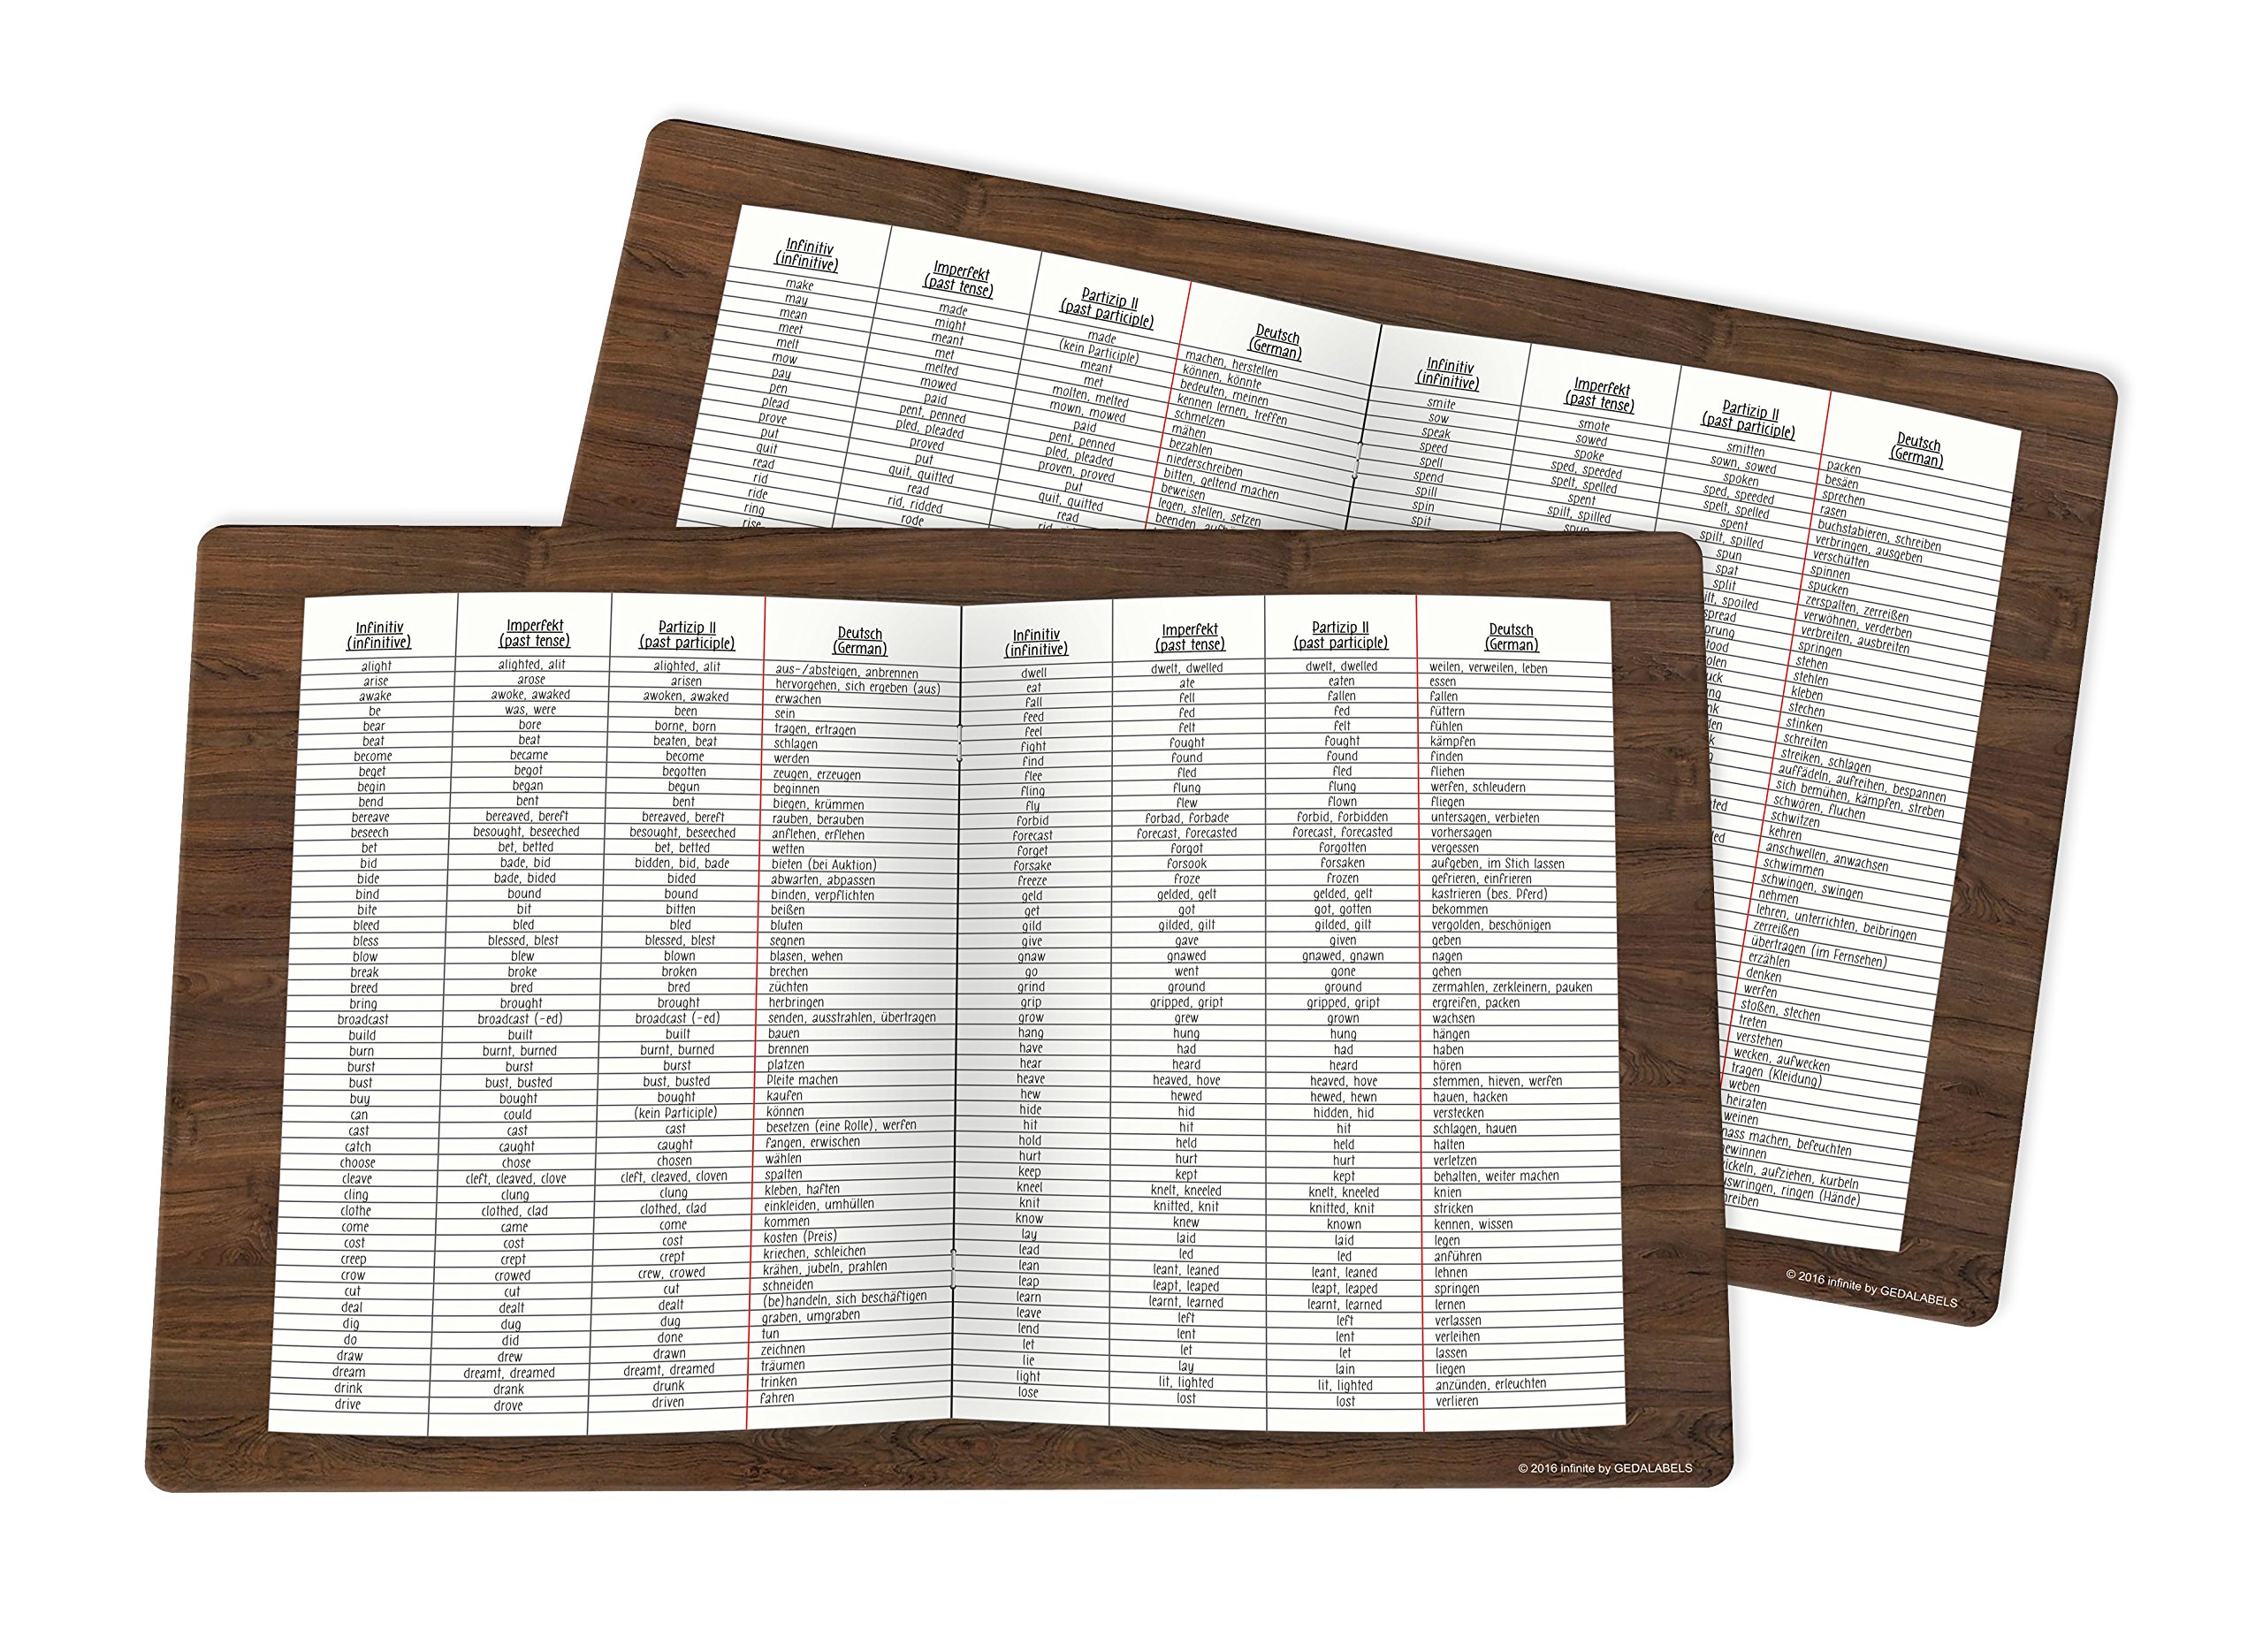 Infinitiv (infinitive) Imperfekt (past tense) Partizip II (past participle) Deutsch (German)
make made made machen, herstellen
may might (kein Participle) können, könnte
mean meant meant bedeuten, meinen
meet met met kennen lernen, treffen
melt melted molten, melted schmelzen
mow mowed mown, mowed mähen
pay paid paid bezahlen
pen pent, penned pent, penned niederschreiben
plead pled, pleaded pled, pleaded bitten, geltend machen
prove proved proven, proved beweisen
put put put legen, stellen, setzen
quit quit, quitted quit, quitted beenden,
read read read
rid rid, ridded
ride rode
ring
rise
Infinitiv (infinitive) Imperfekt (past tense) Partizip II (past participle) Deutsch (German)
smite smote smitten packen
sow sowed sown, sowed besäen
speak spoke spoken sprechen
speed sped, speeded sped, speeded rasen
spell spelt, spelled spelt, spelled buchstabieren, schreiben
spend spent spent verbringen, ausgeben
spill spilt, spilled spilt, spilled verschütten
spin spun spun spinnen
spit spat spucken
split zerspalten, zerreißen
spoiled verwöhnen, verderben
spread verbreiten, ausbreiten
springen
stehen
stehlen
kleben
stechen
stinken
schreiten
streiken, schlagen
auffädeln, aufreihen, bespannen
sich bemühen, kämpfen, streben
schwören, fluchen
schwitzen
kehren
anschwellen, anwachsen
schwimmen
schwingen, swingen
nehmen
lehren, unterrichten, beibringen
zerreißen
übertragen (im Fernsehen)
erzählen
denken
werfen
stoßen, stechen
treten
verstehen
wecken, aufwecken
tragen (Kleidung)
weben
heiraten
weinen
nass machen, befeuchten
aufziehen, kurbeln
ringen (Hände)
© 2016 infinite by GEDALABELS
Infinitiv (infinitive) Imperfekt (past tense) Partizip II (past participle) Deutsch (German)
alight alighted, alit alighted, alit aus-/absteigen, anbrennen
arise arose arisen hervorgehen, sich ergeben (aus)
awake awoke, awaked awoken, awaked erwachen
be was, were been sein
bear bore borne, born tragen, ertragen
beat beat beaten, beat schlagen
become became become werden
beget begot begotten zeugen, erzeugen
begin began begun beginnen
bend bent bent biegen, krümmen
bereave bereaved, bereft bereaved, bereft rauben, berauben
beseech besought, beseeched besought, beseeched anflehen, erflehen
bet bet, betted bet, betted wetten
bid bade, bid bidden, bid, bade bieten (bei Auktion)
bide bade, bided bided abwarten, abpassen
bind bound bound binden, verpflichten
bite bit bitten beißen
bleed bled bled bluten
bless blessed, blest blessed, blest segnen
blow blew blown blasen, wehen
break broke broken brechen
breed bred bred züchten
bring brought brought herbringen
broadcast broadcast (-ed) broadcast (-ed) senden, ausstrahlen, übertragen
build built built bauen
burn burnt, burned burnt, burned brennen
burst burst burst platzen
bust bust, busted bust, busted Pleite machen
buy bought bought kaufen
can could (kein Participle) können
cast cast cast besetzen (eine Rolle), werfen
catch caught caught fangen, erwischen
choose chose chosen wählen
cleave cleft, cleaved, clove cleft, cleaved, cloven spalten
cling clung clung kleben, haften
clothe clothed, clad clothed, clad einkleiden, umhüllen
come came come kommen
cost cost cost kosten (Preis)
creep crept crept kriechen, schleichen
crow crowed crew, crowed krähen, jubeln, prahlen
cut cut cut schneiden
deal dealt dealt (be)handeln, sich beschäftigen
dig dug dug graben, umgraben
do did done tun
draw drew drawn zeichnen
dream dreamt, dreamed dreamt, dreamed träumen
drink drank drunk trinken
drive drove driven fahren
Infinitiv (infinitive) Imperfekt (past tense) Partizip II (past participle) Deutsch (German)
dwell dwelt, dwelled dwelt, dwelled weilen, verweilen, leben
eat ate eaten essen
fall fell fallen fallen
feed fed fed füttern
feel felt felt fühlen
fight fought fought kämpfen
find found found finden
flee fled fled fliehen
fling flung flung werfen, schleudern
fly flew flown fliegen
forbid forbad, forbade forbid, forbidden untersagen, verbieten
forecast forecast, forecasted forecast, forecasted vorhersagen
forget forgot forgotten vergessen
forsake forsook forsaken aufgeben, im Stich lassen
freeze froze frozen gefrieren, einfrieren
geld gelded, gelt gelded, gelt kastrieren (bes. Pferd)
get got got, gotten bekommen
gild gilded, gilt gilded, gilt vergolden, beschönigen
give gave given geben
gnaw gnawed gnawed, gnawn nagen
go went gone gehen
grind ground ground zermahlen, zerkleinern, pauken
grip gripped, gript gripped, gript ergreifen, packen
grow grew grown wachsen
hang hung hung hängen
have had had haben
hear heard heard hören
heave heaved, hove heaved, hove stemmen, hieven, werfen
hew hewed hewed, hewn hauen, hacken
hide hid hidden, hid verstecken
hit hit hit schlagen, hauen
hold held held halten
hurt hurt hurt verletzen
keep kept kept behalten, weiter machen
kneel knelt, kneeled knelt, kneeled knien
knit knitted, knit knitted, knit stricken
know knew known kennen, wissen
lay laid laid legen
lead led led anführen
lean leant, leaned leant, leaned lehnen
leap leapt, leaped leapt, leaped springen
learn learnt, learned learnt, learned lernen
leave left left verlassen
lend lent lent verleihen
let let let lassen
lie lay lain liegen
light lit, lighted lit, lighted anzünden, erleuchten
lose lost lost verlieren
© 2016 infinite by GEDALABELS